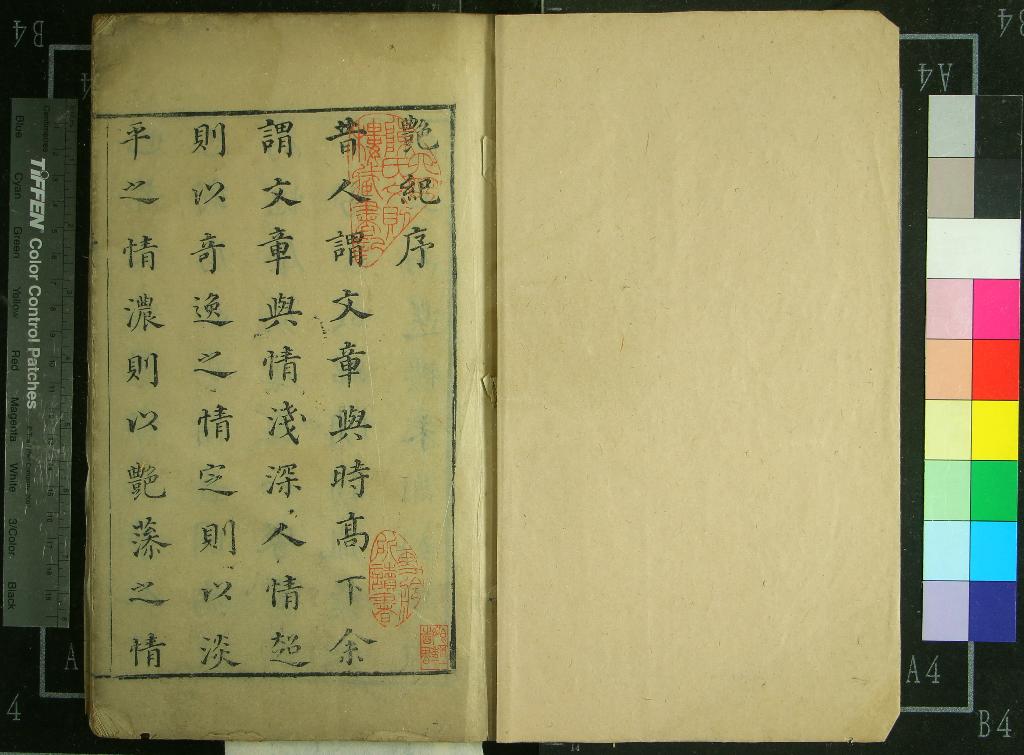 艷紀序
昔人謂文章與時高下余
謂文章與情淺深人情超
則以奇逸之情定則以淡
平之情濃則以艷藻之情
TIFFEN Color Control Patches
Blue Cyan Green Yellow Red Magenta White 3/Color Black
Centimetres
B4
A4
A4
B4
A4
B4
A
4